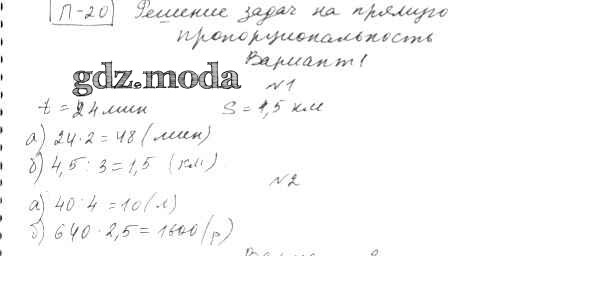 П-20 Решение задач на прямую
пропорциональность
Вариант 1
gdz.moda
№1
t = 24 мин S = 4,5 км
а) 24·2=48 (мин)
б) 4,5:3=1,5 (км)
№2
а) 40:4=10 (л)
б) 640·2,5=1600 (р)